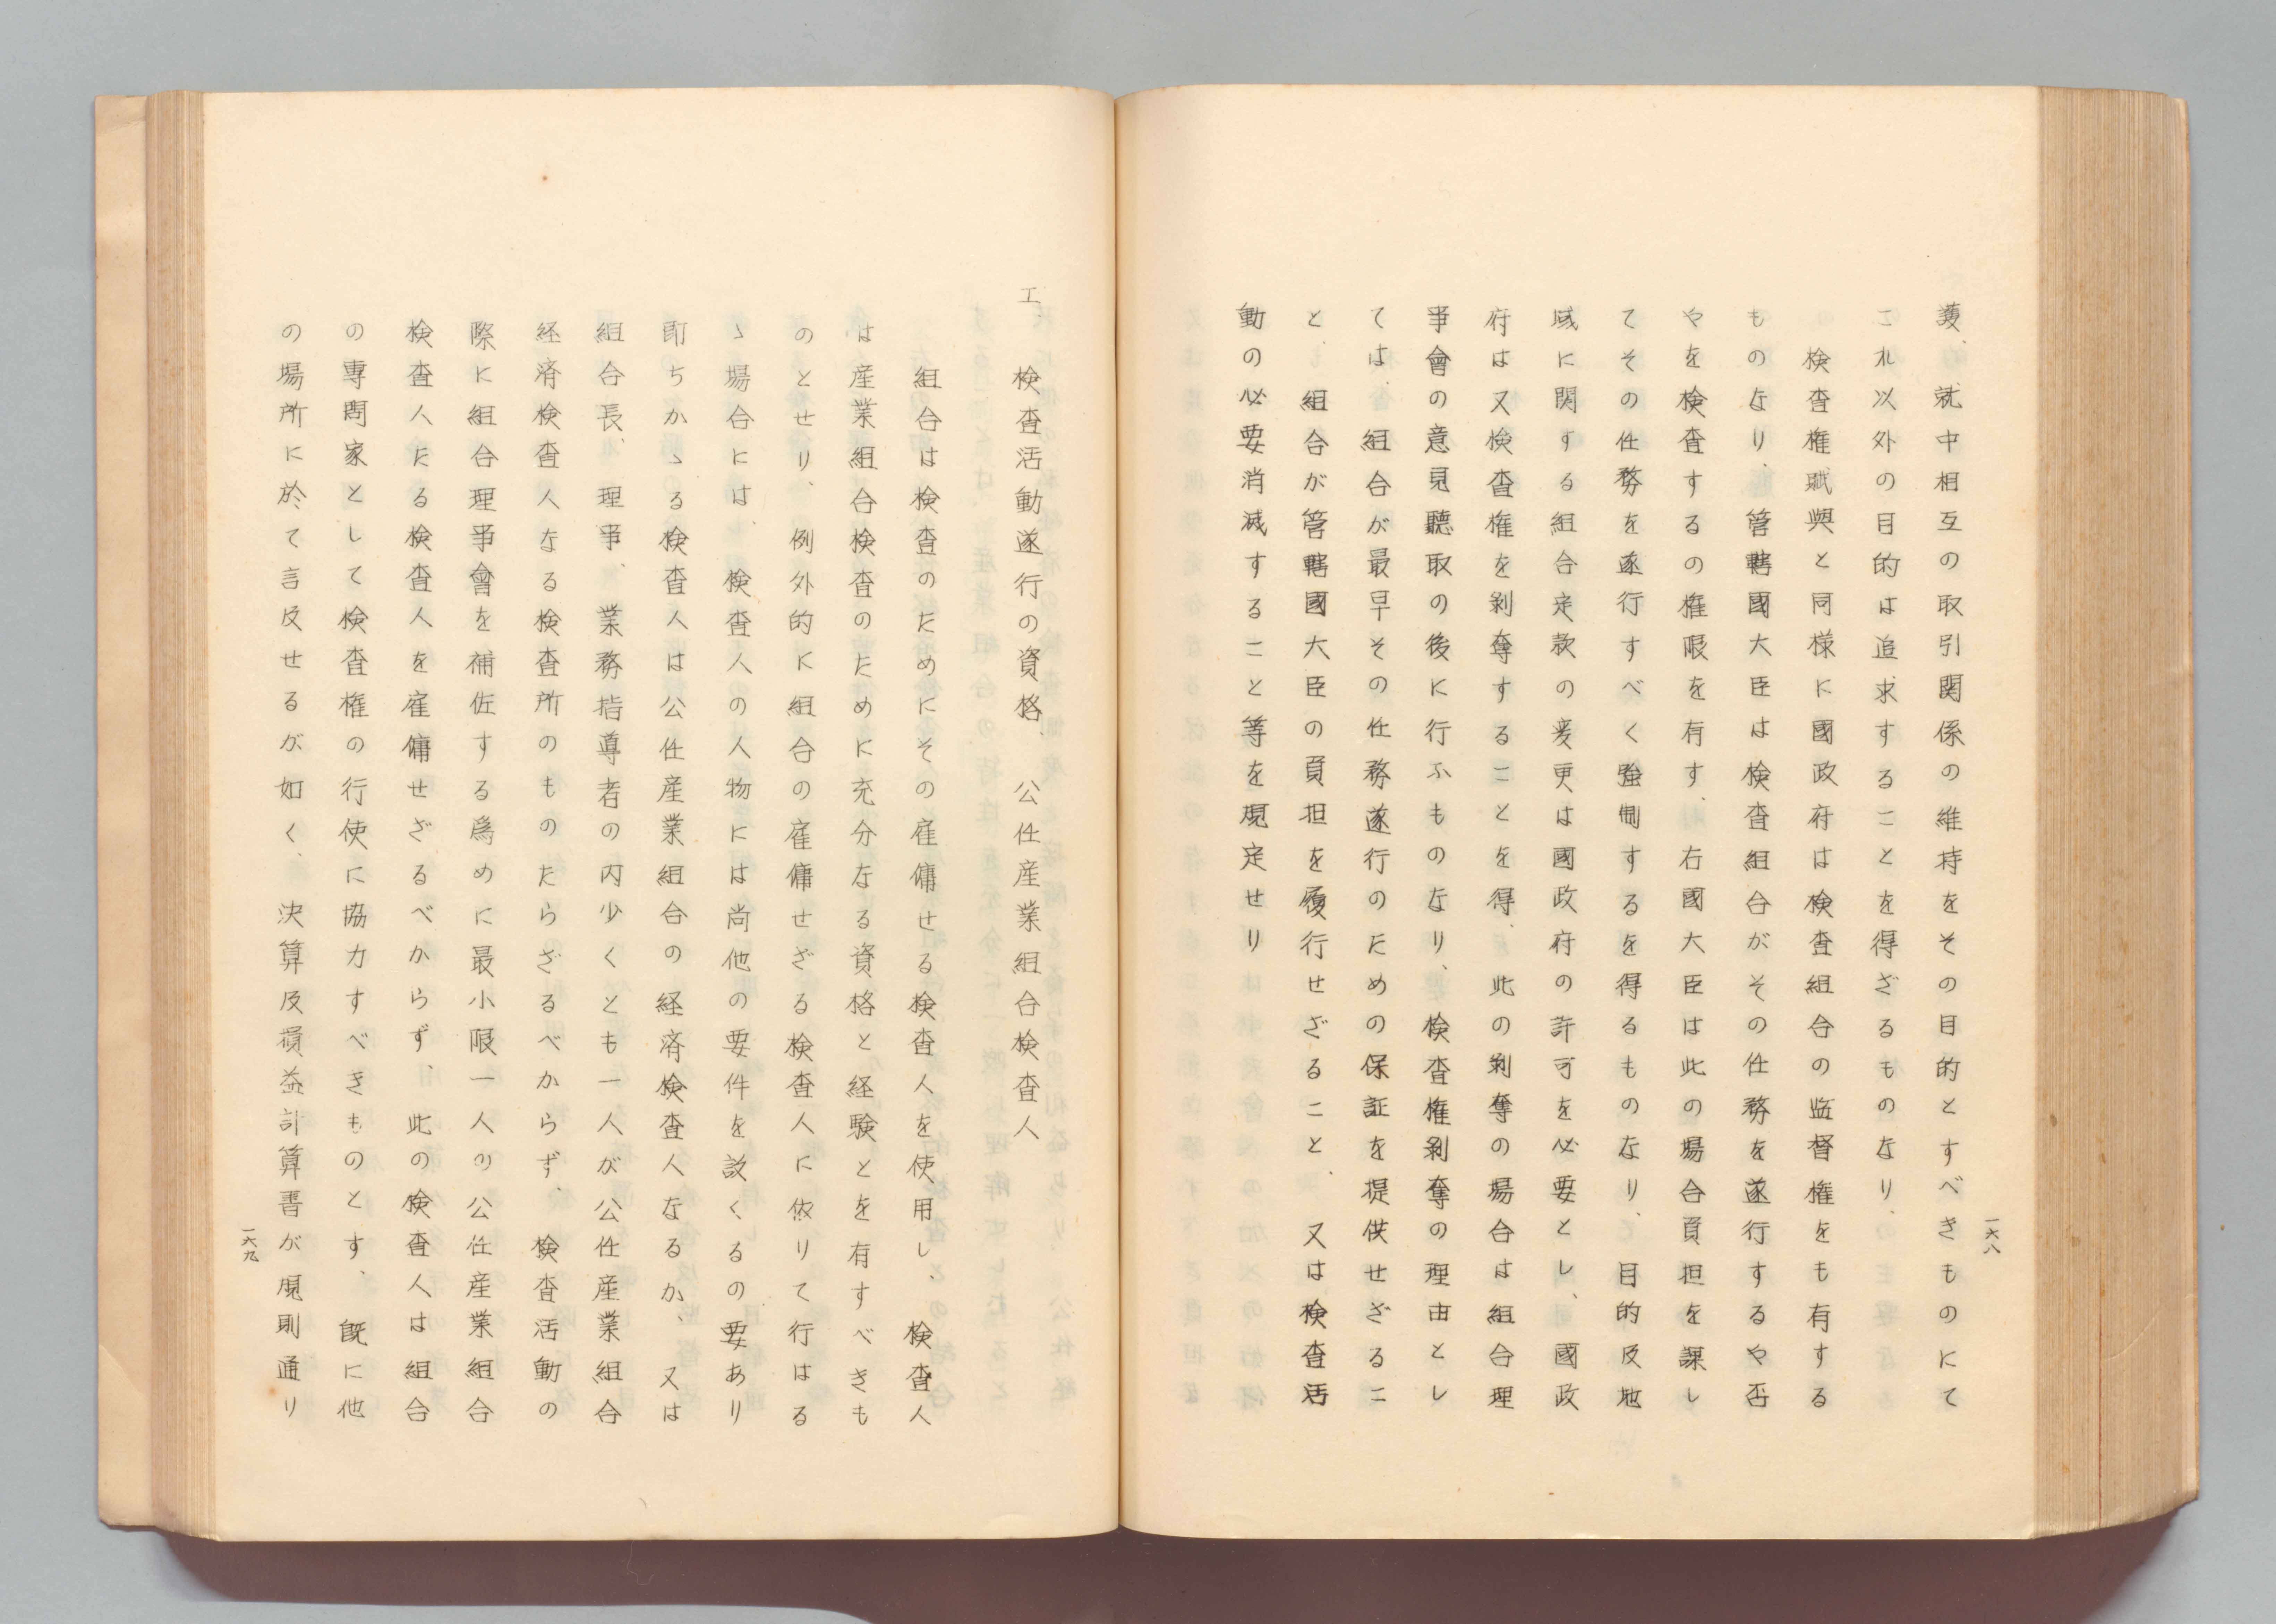 一六八
護、就中相互の取引関係の維持をその目的とすべきものにて
これ以外の目的は追求することを得ざるものなり、
検査権賦與と同様に國政府は検査組合の監督権をも有する
ものなり、管轄國大臣は検査組合がその任務を遂行するや否
やを検査するの権限を有す、右國大臣は此の場合負担を課し
てその任務を遂行すべく強制するを得るものなり、目的及地
域に関する組合定款の変更は國政府の許可を必要とし、國政
府は又検査権を剥奪することを得、此の剥奪の場合は組合理
事會の意見聴取の後に行ふものなり、検査権剥奪の理由とし
ては、組合が最早その任務遂行のための保証を提供せざるこ
と、組合が管轄國大臣の負担を履行せざること、又は検査活
動の必要消滅すること等を規定せり
エ、検査活動遂行の資格、公任産業組合検査人
組合は検査のためにその雇傭せる検査人を使用し、検査人
は産業組合検査のために充分なる資格と経験とを有すべきも
のとせり、例外的に組合の雇傭せざる検査人に依りて行はる
ゝ場合には、検査人の人物には尚他の要件を設くるの要あり
即ちかゝる検査人は公任産業組合の経済検査人なるか、又は
組合長、理事、業務指導者の内少くとも一人が公任産業組合
経済検査人なる検査所のものたらざるべからず、検査活動の
際に組合理事會を補佐する為めに最小限一人の公任産業組合
検査人たる検査人を雇傭せざるべからず、此の検査人は組合
の専問家として検査権の行使に協力すべきものとす、既に他
の場所に於て言及せるが如く、決算及損益計算書が規則通り
一六九